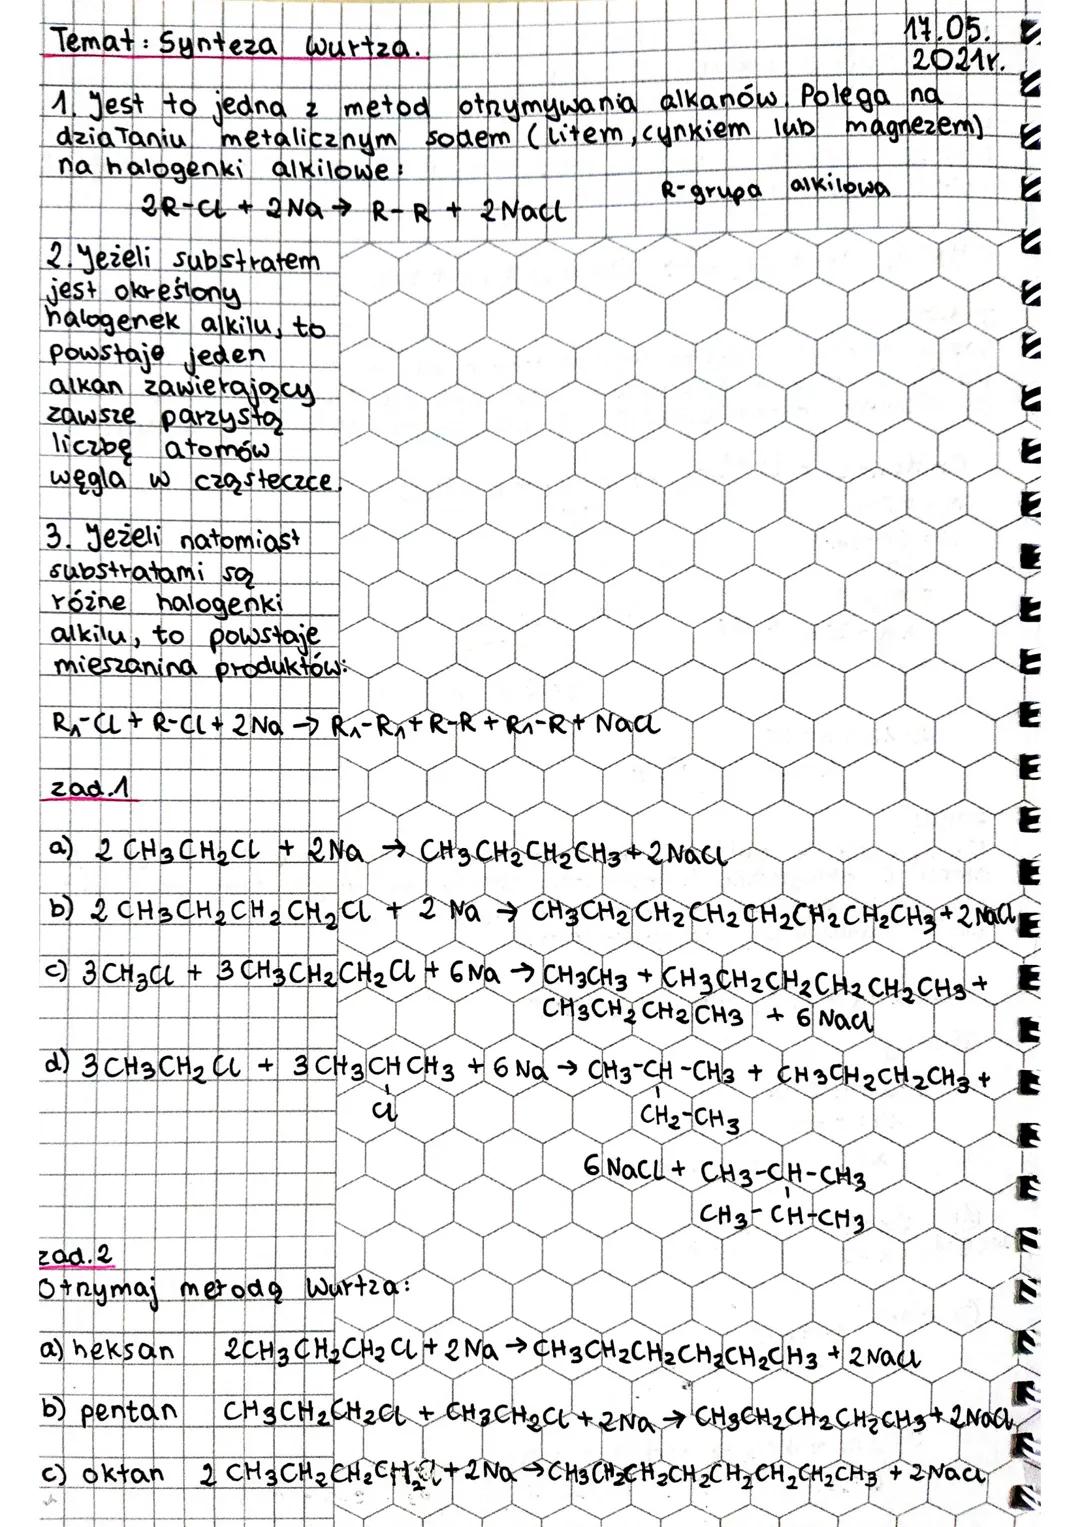 Temat: Synteza Wurtza.
17.05.
2021r.
1. Jest to jedna z metod otrzymywania alkanów. Polega na
działaniu metalicznym sodem (litem, cynkiem lub magnezem)
na halogenki alkilowe:
R-grupa alkilowa
2R-Cl + 2Na → R-R + 2NaCl
2. Jeżeli substratem
jest określony
halogenek alkilu, to
powstaje jeden
alkan zawierający
zawsze parzystą
liczbę atomów
węgla w cząsteczce.
3. Jeżeli natomiast
substratami są
różne halogenki
alkilu, to powstaje
mieszanina produktów:
R₁-Cl + R-Cl + 2Na → R₁-R₁ + R-R + R₁-R + NaCl
zad.1
a) 2 CH₃CH₂Cl + 2Na → CH₃CH₂CH₂CH₃ + 2NaCl
b) 2 CH₃CH₂CH₂CH₂Cl + 2 Na → CH₃CH₂CH₂CH₂CH₂CH₂CH₂CH₃ + 2NaCl
c) 3CH₃Cl + 3CH₃CH₂CH₂Cl + 6Na → CH₃CH₃ + CH₃CH₂CH₂CH₂CH₂CH₃ +
CH₃CH₂CH₂CH₃ + 6 NaCl
d) 3CH₃CH₂Cl + 3CH₃CHCH₃ + 6 Na → CH₃-CH-CH₃ + CH₃CH₂CH₂CH₃ +
Cl CH₂-CH₃
6NaCl + CH₃-CH-CH₃
CH₃-CH-CH₃
zad.2
Otrzymaj metodą Wurtza:
a) heksan 2CH₃CH₂CH₂Cl + 2Na → CH₃CH₂CH₂CH₂CH₂CH₃ + 2NaCl
b) pentan CH₃CH₂CH₂Cl + CH₃CH₂Cl + 2Na → CH₃CH₂CH₂CH₂CH₃ + 2NaCl
c) oktan 2 CH₃CH₂CH₂CH₂Cl + 2Na → CH₃CH₂CH₂CH₂CH₂CH₂CH₂CH₃ + 2NaCl